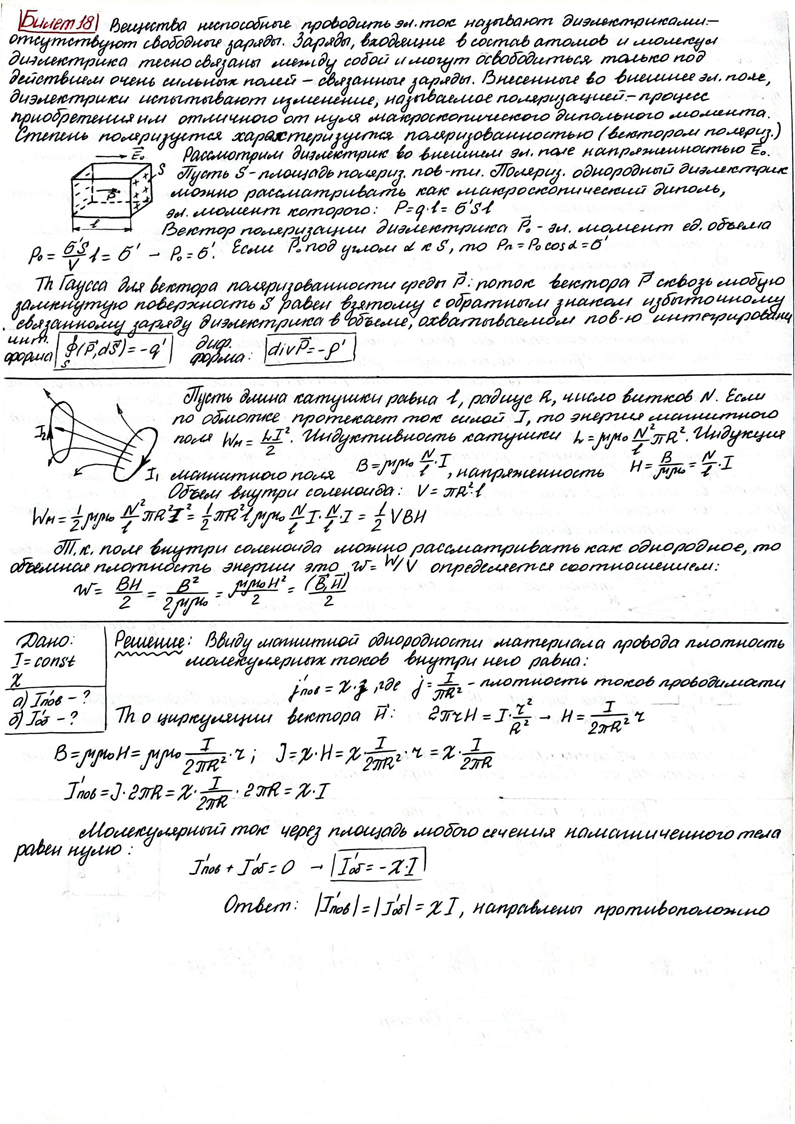 Билет 18 Вещества неспособные проводить эл. ток называют диэлектриками –
отсутствуют свободные заряды. Заряды, входящие в состав атомов и молекул
диэлектрика тесно связаны между собой и могут освободиться только под
действием очень сильных полей – связанные заряды. Внесенные во внешнее эл. поле,
диэлектрики испытывают изменение, называемое поляризацией – процесс
приобретения им отличного от нуля макроскопического дипольного момента.
Степень поляризуется характеризуется поляризованностью (вектором поляриз.)
E⃗₀ S P⃗ l
Рассмотрим диэлектрик во внешнем эл. поле напряженностью E⃗₀.
Пусть S – площадь поляриз. пов-ти. Поляриз. однородный диэлектрик
можно рассматривать как макроскопический диполь,
эл. момент которого: P=q·l=σ'Sl
Вектор поляризации диэлектрика P⃗₀ – эл. момент ед. объема
P₀ = σ'S/V l = σ' → P₀=σ'. Если P⃗₀ под углом α к S, то Pn=P₀cosα=σ'
Th Гаусса для вектора поляризованности среды P⃗: поток вектора P⃗ сквозь любую
замкнутую поверхность S равен взятому с обратным знаком избыточному
связанному заряду диэлектрика в объеме, охватываемом пов-ю интегрировани
инт. форма ∮S(P⃗,dS⃗)=-q' диф. форма: divP⃗=-ρ'
I₂ I₁
Пусть длина катушки равна l, радиус R, число витков N. Если
по обмотке протекает ток силой I, то энергия магнитного
поля Wм = LI²/2. Индуктивность катушки L=μμ₀ N²/l πR². Индукция
магнитного поля B=μμ₀ N/l ·I, напряженность H = B/μμ₀ = N/l ·I
Объем внутри соленоида: V = πR²·l
Wм = 1/2 μμ₀ N²/l πR²I² = 1/2 πR²l μμ₀ N/l I· N/l ·I = 1/2 VBH
Т.к. поле внутри соленоида можно рассматривать как однородное, то
объемная плотность энергии это w=W/V определяется соотношением:
w = BH/2 = B²/2μμ₀ = μμ₀H²/2 = (B⃗,H⃗)/2
Дано:
I=const
χ
а) I'пов – ?
б) I'об – ?
Решение: Ввиду магнитной однородности материала провода плотность
молекулярных токов внутри него равна:
j'пов = χ·j, где j = I/πR² – плотность токов проводимати
Th о циркуляции вектора H⃗: 2πrH = I· r²/R² → H = I/2πR² r
B=μμ₀H=μμ₀ I/2πR² ·r; J=χ·H=χ· I/2πR² ·r = χ· I/2πR
I'пов=J·2πR=χ· I/2πR ·2πR=χ·I
Молекулярный ток через площадь любого сечения намагниченного тела
равен нулю:
I'пов + I'об = 0 → I'об = -χ·I
Ответ: |I'пов|=|I'об|=χI, направлены противоположно